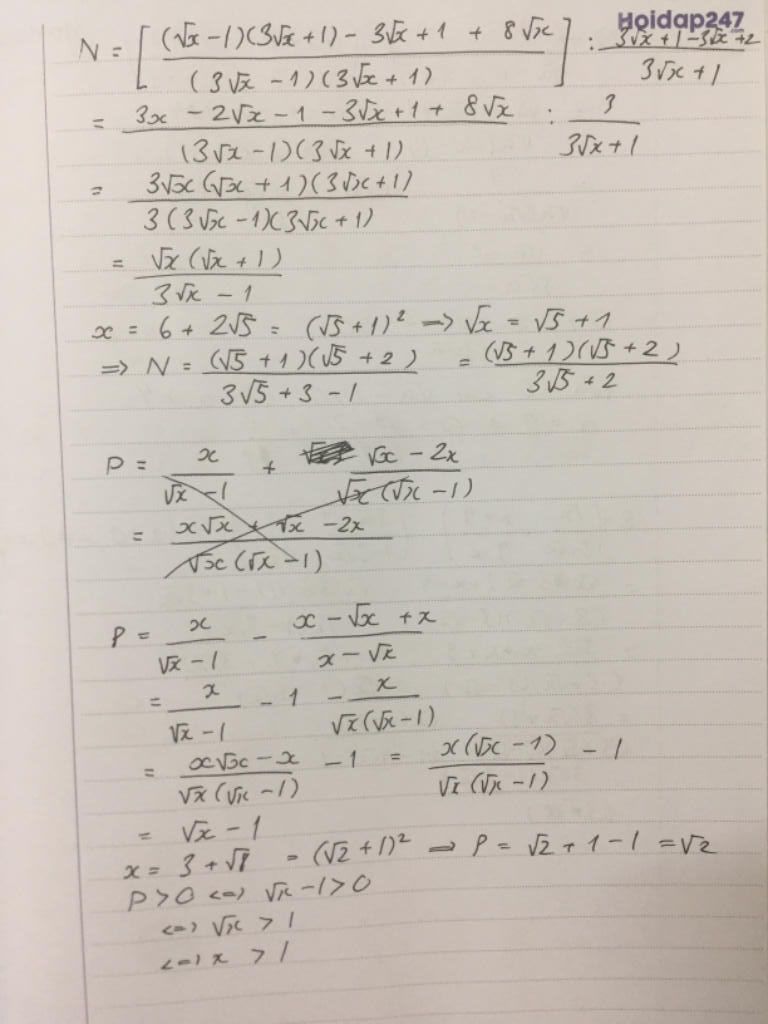 Hoidap247
.com
N = [ ((√x − 1)(3√x + 1) − 3√x + 1 + 8√x) / ((3√x − 1)(3√x + 1)) ] : (3√x + 1 − 3√x + 2) / (3√x + 1)
= (3x − 2√x − 1 − 3√x + 1 + 8√x) / ((3√x − 1)(3√x + 1)) : 3 / (3√x + 1)
= (3√x(√x + 1)(3√x + 1)) / (3(3√x − 1)(3√x + 1))
= (√x(√x + 1)) / (3√x − 1)
x = 6 + 2√5 = (√5 + 1)² => √x = √5 + 1
=> N = ((√5 + 1)(√5 + 2)) / (3√5 + 3 − 1) = ((√5 + 1)(√5 + 2)) / (3√5 + 2)
P = x / (√x − 1) + (√x − 2x) / (√x(√x − 1))
= (x√x + √x − 2x) / (√x(√x − 1))
P = x / (√x − 1) − (x − √x + x) / (x − √x)
= x / (√x − 1) − 1 − x / (√x(√x − 1))
= (x√x − x) / (√x(√x − 1)) − 1 = (x(√x − 1)) / (√x(√x − 1)) − 1
= √x − 1
x = 3 + √8 = (√2 + 1)² => P = √2 + 1 − 1 = √2
P > 0 <=> √x − 1 > 0
<=> √x > 1
<=> x > 1